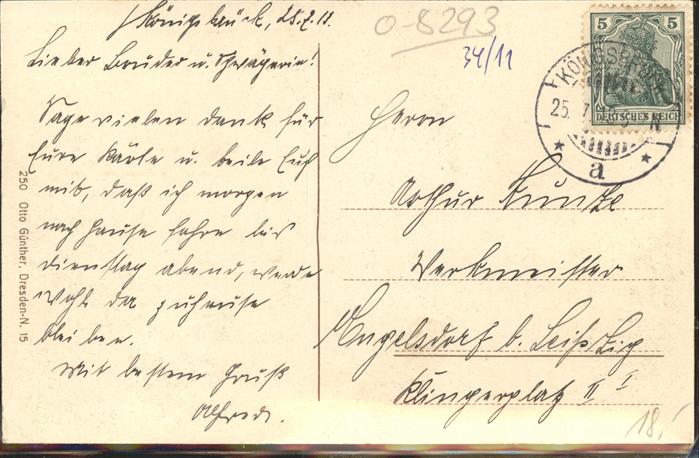 Königsbrück, 25.7.11.
Lieber Bruder u. Schwägerin!
Sage vielen Dank für
Eure Karte u. teile Euch
mit, daß ich morgen
nach Hause fahre bis
Dienstag abend, werde
wohl da zuhause
bleiben.
Mit bestem Gruß
Alfred.
250 Otto Günther, Dresden-N. 15
0-8293
34/11
5 5
DEUTSCHES REICH
KÖNIGSBRÜCK
25. 7.
* a *
Herrn
Arthur Kuntze
Werkmeister
Engelsdorf b. Leipzig
Klingerplatz II I
18,-